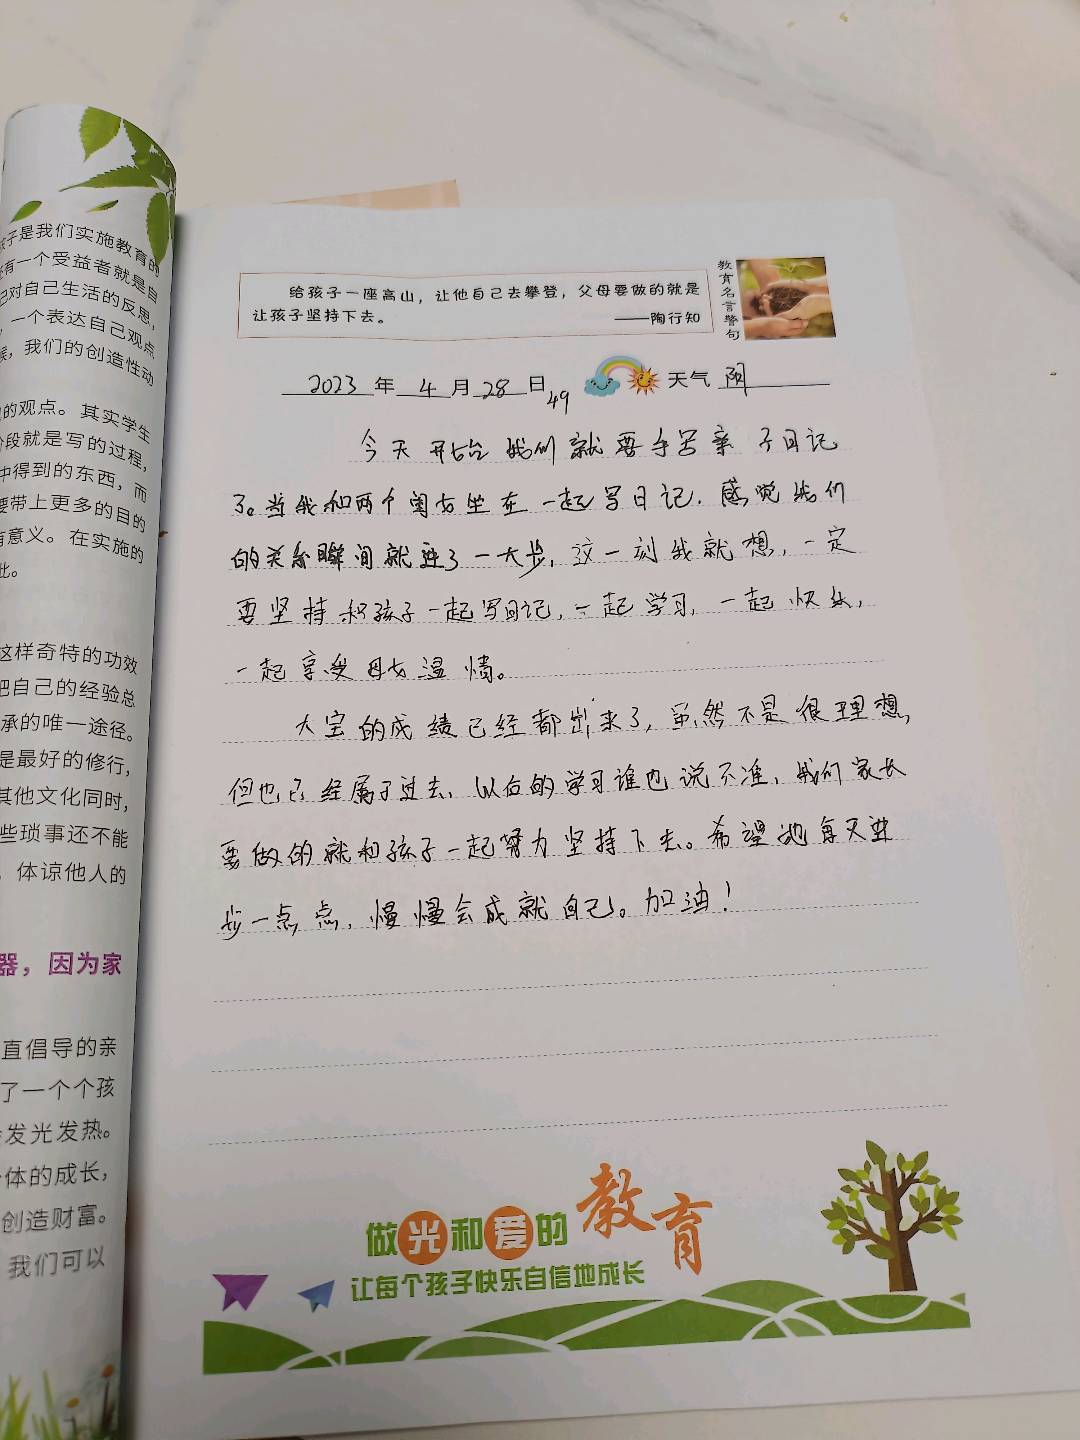 孩子是我们实施教育的
还有一个受益者就是自
己对自己生活的反思,
一个表达自己观点
候,我们的创造性动
的观点。其实学生
阶段就是写的过程,
中得到的东西,而
要带上更多的目的
有意义。在实施的
此。
这样奇特的功效
把自己的经验总
承的唯一途径。
是最好的修行,
其他文化同时,
些琐事还不能
,体谅他人的
器,因为家
直倡导的亲
了一个个孩
发光发热。
体的成长,
创造财富。
我们可以
给孩子一座高山,让他自己去攀登,父母要做的就是
让孩子坚持下去。 ——陶行知
教育名言警句
2023 年 4 月 28 日 49 天气 阴
今天开始我们就要手写亲子日记
了。当我和两个闺女坐在一起写日记,感觉我们
的关系瞬间就进了一大步,这一刻我就想,一定
要坚持和孩子一起写日记,一起学习,一起快乐,
一起享受母女温情。
大宝的成绩已经都出来了,虽然不是很理想,
但也已经属于过去,以后的学习谁也说不准,我们家长
要做的就和孩子一起努力坚持下去。希望她每天进
步一点点,慢慢会成就自己。加油!
做光和爱的教育
让每个孩子快乐自信地成长